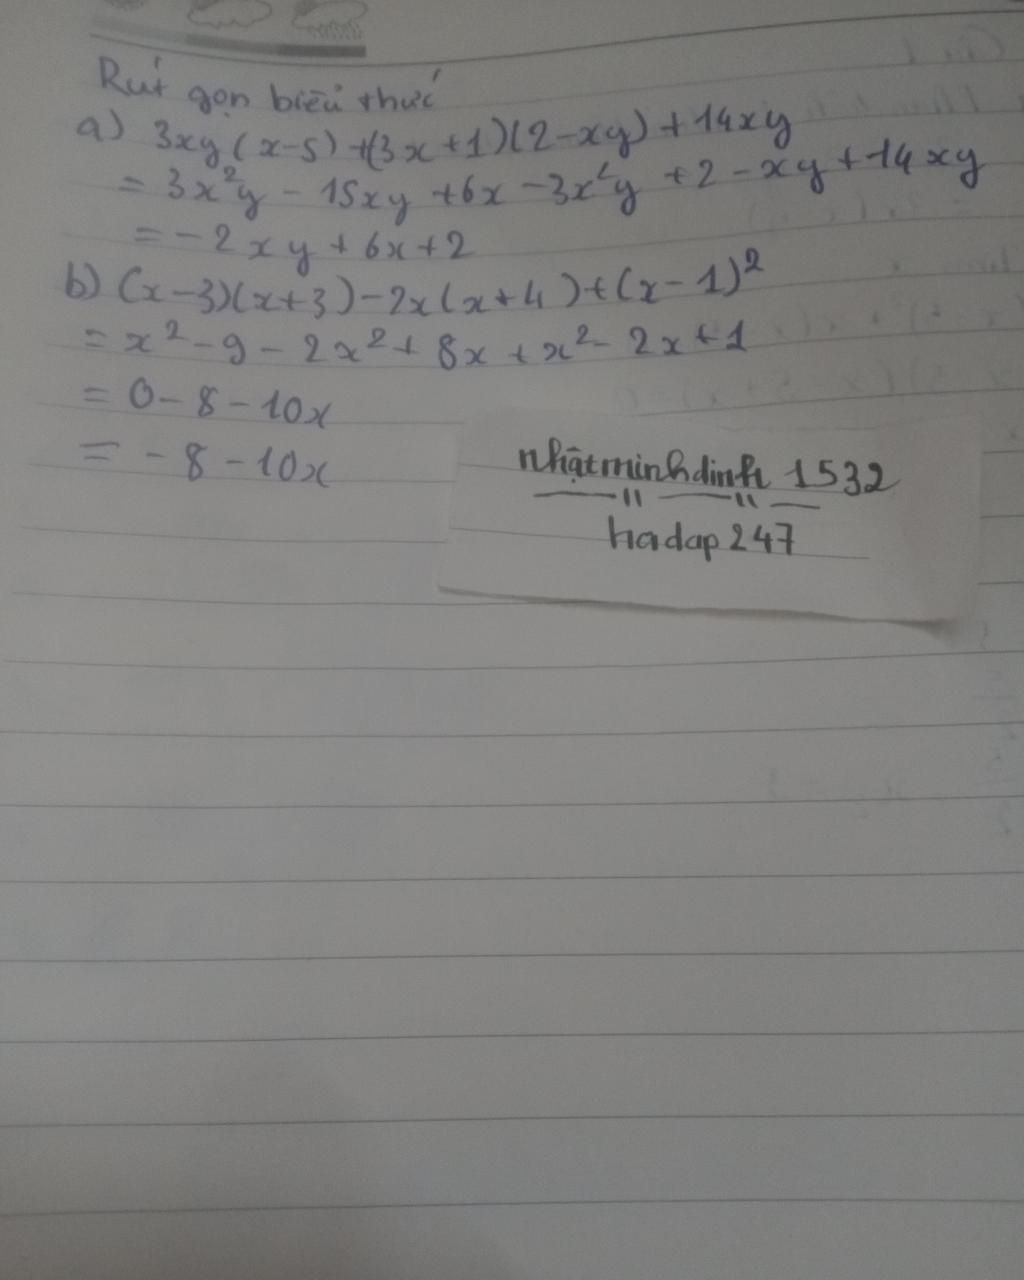 Rút gọn biểu thức
a) 3xy(x-5)+(3x+1)(2-xy)+14xy
= 3x²y - 15xy + 6x - 3x²y + 2 - xy + 14xy
= -2xy + 6x + 2
b) (x-3)(x+3) - 2x(x+4) + (x-1)²
= x² - 9 - 2x² + 8x + x² - 2x + 1
= 0 - 8 - 10x
= - 8 - 10x
nhậtminhdinh 1532
hadap 247